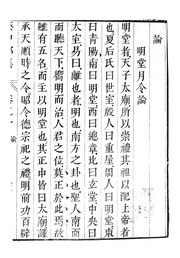 論
明堂月令論
明堂者天子太廟所以崇禮其祖以配上帝者
也夏后氏曰世室殷人曰重屋周人曰明堂東
曰青陽南曰明堂西曰總章北曰玄堂中央曰
太室易曰離也者明也南方之卦也聖人南面
而聽天下嚮明而治人君之位莫正於此焉故
雖有五名而主以明堂也其正中皆曰太廟謹
承天順時之令昭令德宗祀之禮明前功百辟